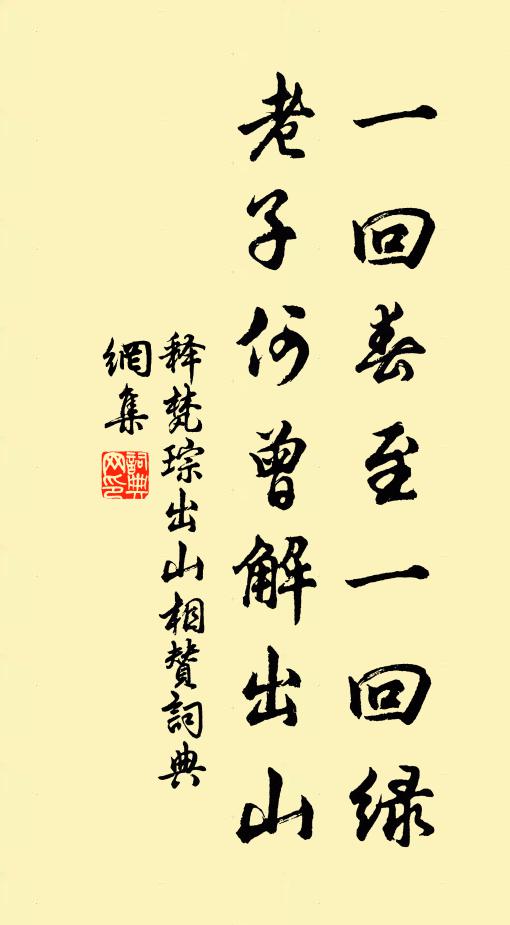 一回春至一回緑
老子何曾解出山
释梵琮出山相赞詞典
網集
詞典
网印